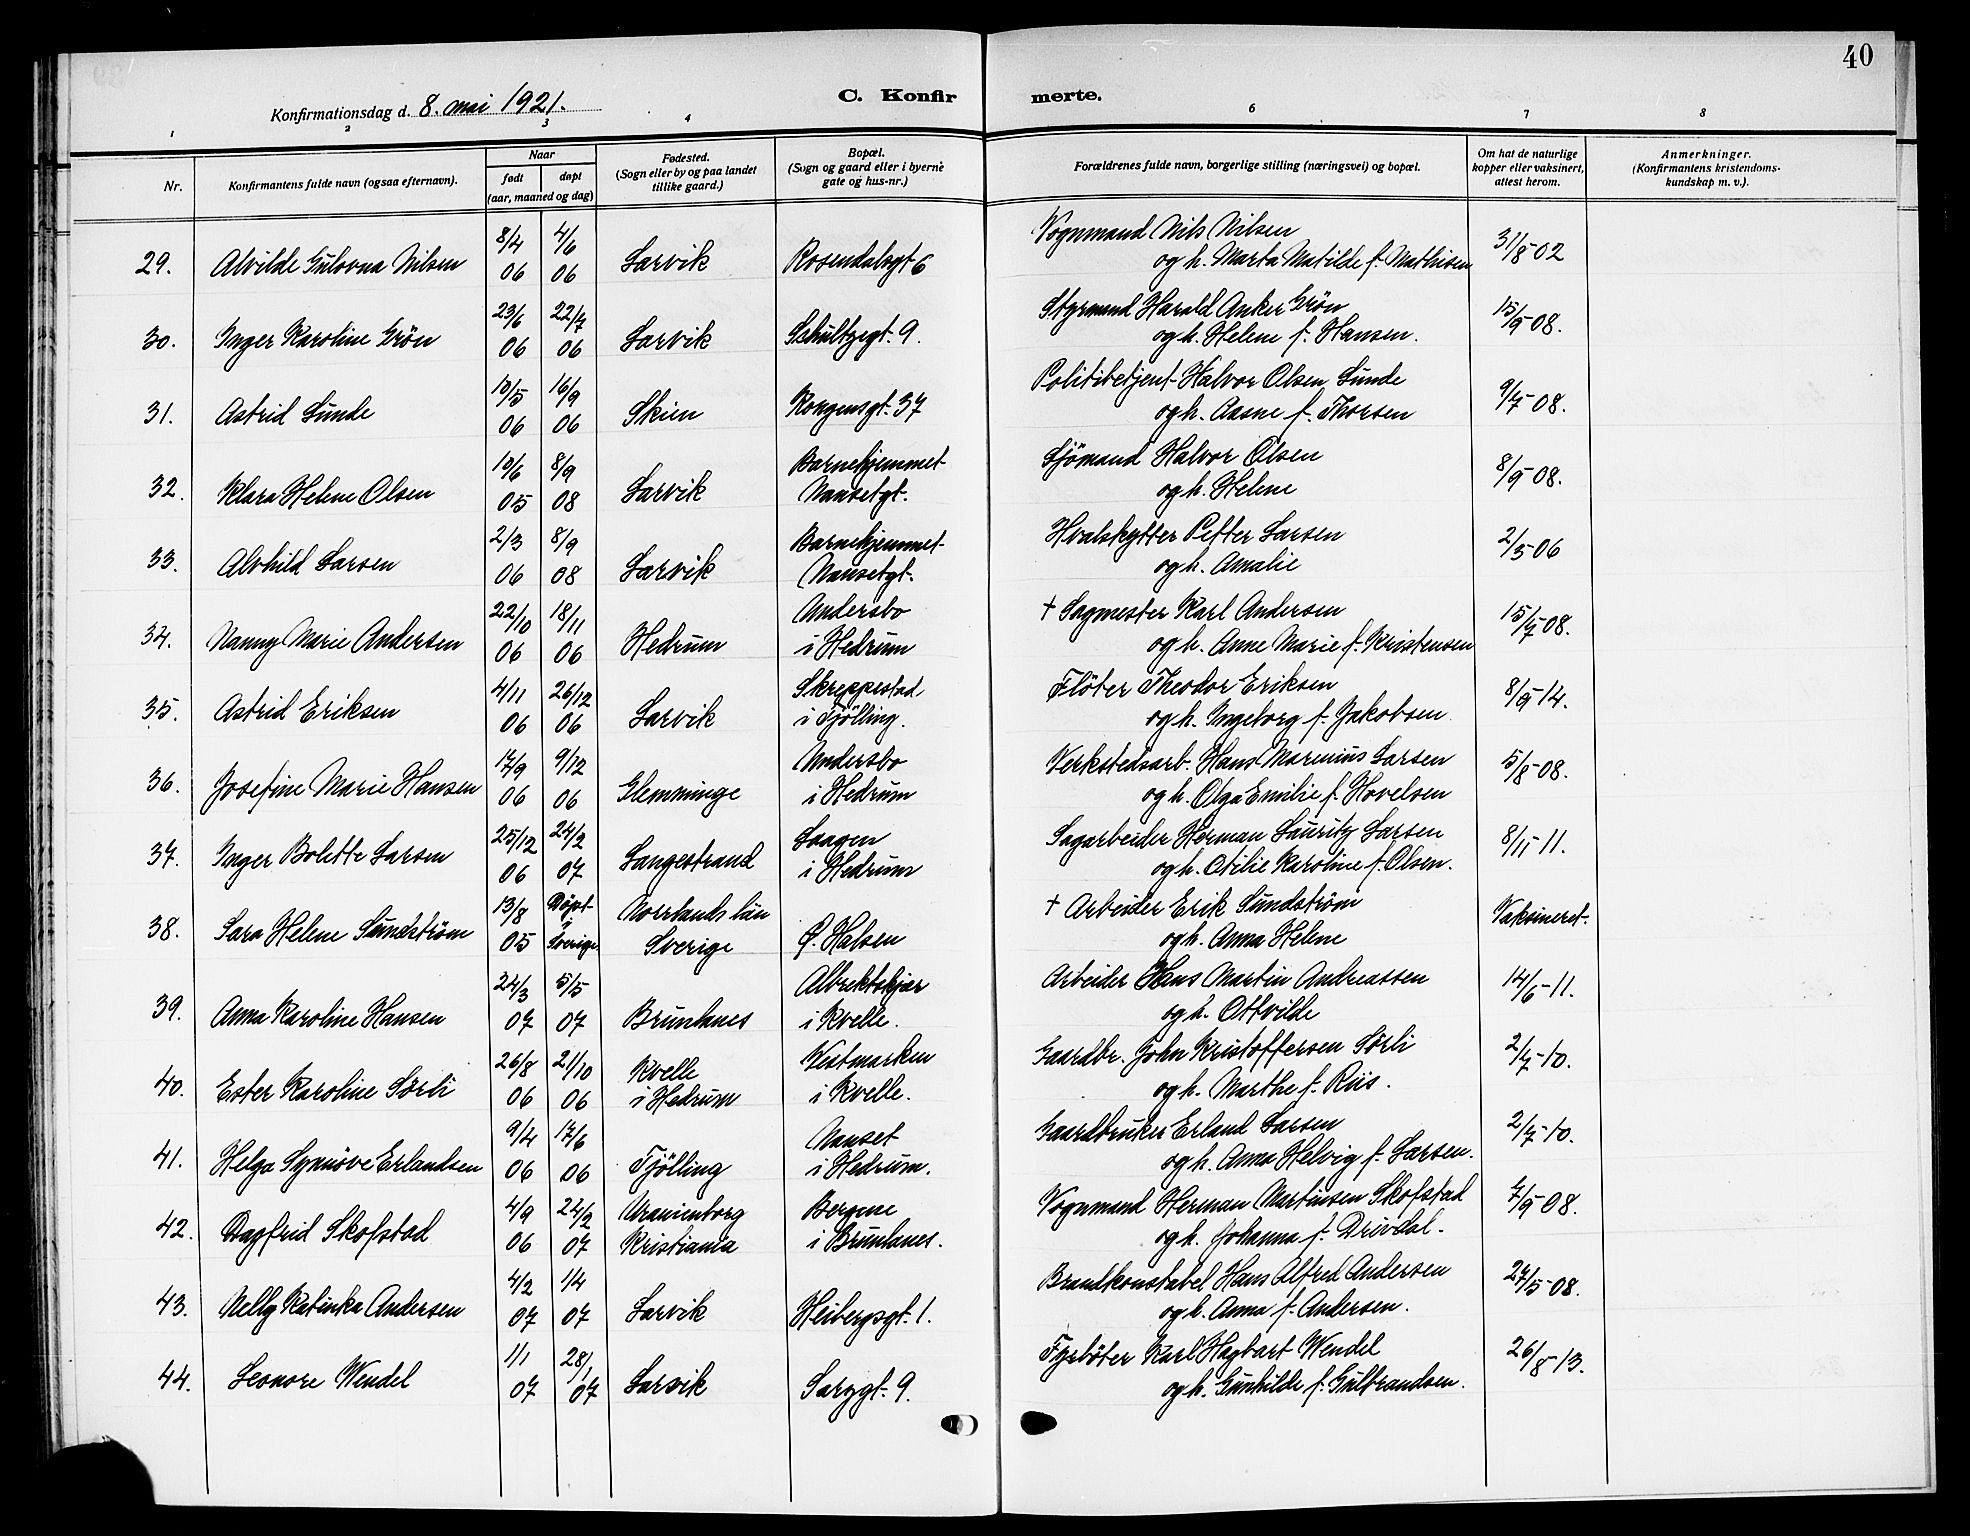 40
Konfirmationsdag d. 8. mai 1921.
C. Konfir
merte.
1 2 3 4 6 7 8
Nr.
Konfirmantens fulde navn (ogsaa efternavn).
Naar
født
døpt
(aar, maaned og dag)
Fødested.
(Sogn eller by og paa landet
tillike gaard.)
Bopæl.
(Sogn og gaard eller i byerne
gate og hus-nr.)
Forældrenes fulde navn, borgerlige stilling (næringsvei) og bopæl.
Om hat de naturlige
kopper eller vaksinert,
attest herom.
Anmerkninger.
(Konfirmantens kristendoms-
kundskap m. v.).
8/4 4/6 Vognmand Nils Nilsen 31/8-02
29. Alvilde Gulovna Nilsen 06 06 Larvik Rosendalsgt 6 og h. Marta Matilde f. Mathisen
23/6 22/7 Styrmand Harald Anker Grön 15/9-08.
30. Inger Karoline Grön 06 06 Larvik Schultzegt. 9. og h. Helene f. Hansen.
10/5 16/9 Politibetjent Halvor Olsen Lunde 9/7-08.
31. Astrid Lunde 06 06 Skien Kongensgt. 37 og h. Aasne f. Thorsen
10/6 8/9 Barnehjemmet Sjömand Halvor Olsen 8/9-08.
32. Klara Helene Olsen 05 08 Larvik Nansetgt. og h. Helene
2/3 8/9 Barnehjemmet Hvalskytter Petter Larsen 2/5-06
33. Alvhild Larsen 06 08 Larvik Nansetgt. og h. Amalie
22/10 18/11 Andersbo † Sagmester Karl Andersen 15/7-08.
34. Nanny Marie Andersen 06 06 Hedrum i Hedrum og h. Anne Marie f. Kristensen
4/11 26/12 Skreppestad Flöter Theodor Eriksen 8/9-14.
35. Astrid Eriksen 06 06 Larvik i Tjölling. og h. Ingeborg f. Jakobsen
17/9 9/12 Andersbo Verkstedsarb. Hans Marinius Larsen 5/8-08.
36. Josefine Marie Hansen 06 06 Glemminge i Hedrum og h. Olga Emilie f. Hovelsen
25/12 24/2 Laagen Sagarbeider Herman Lauritz Larsen 8/11-11.
37. Inger Bolette Larsen 06 07 Langestrand i Hedrum og h. Otilie Karoline f. Olsen.
13/8 Döpt Norrlands län † Arbeider Erik Sundström Vaksineret.
38. Sara Helene Sundström 05 i Sverige Sverige Ø. Halsen og h. Anna Helene
24/3 5/5 Albrektskjær Arbeider Hans Martin Andreassen 14/6-11.
39. Anna Karoline Hansen 07 07 Brunlanes i Kvelle. og h. Ottvilde
26/8 21/10 Kvelle Vestmarken Gaardbr. John Kristoffersen Sörli 2/7-10.
40. Ester Karoline Sörli 06 06 i Hedrum i Kvelle. og h. Marthe f. Riis.
9/4 17/6 Nanset Gaardbruker Erland Larsen 2/7-10.
41. Helga Synnöve Erlandsen 06 06 Tjölling i Hedrum. og h. Anna Helvig f. Larsen.
4/9 24/2 Uranienborg Bergene Vognmand Herman Martinsen Skofstad 7/9-08.
42. Dagfrid Skofstad 06 07 Kristiania i Brunlanes. og h. Johanna f. Drivdal.
4/2 1/4 Brandkonstabel Hans Alfred Andersen 27/5-08.
43. Nelly Katinka Andersen 07 07 Larvik Heibergsgt. 1. og h. Anna f. Andersen.
1/1 28/1 Fyrböter Karl Hagbart Wendel 26/8-13.
44. Leonore Wendel 07 07 Larvik Sarvgt. 9. og h. Gunhilde f. Gulbrandsen.